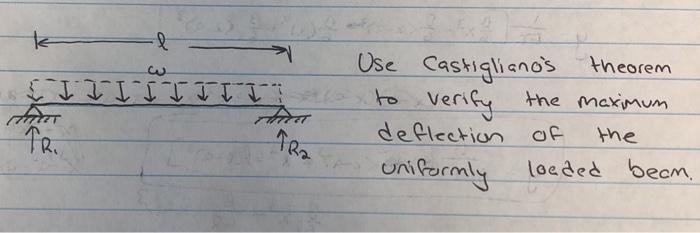 l
w
R1
R2
Use Castigliano's theorem
to verify the maximum
deflection of the
uniformly loaded beam.